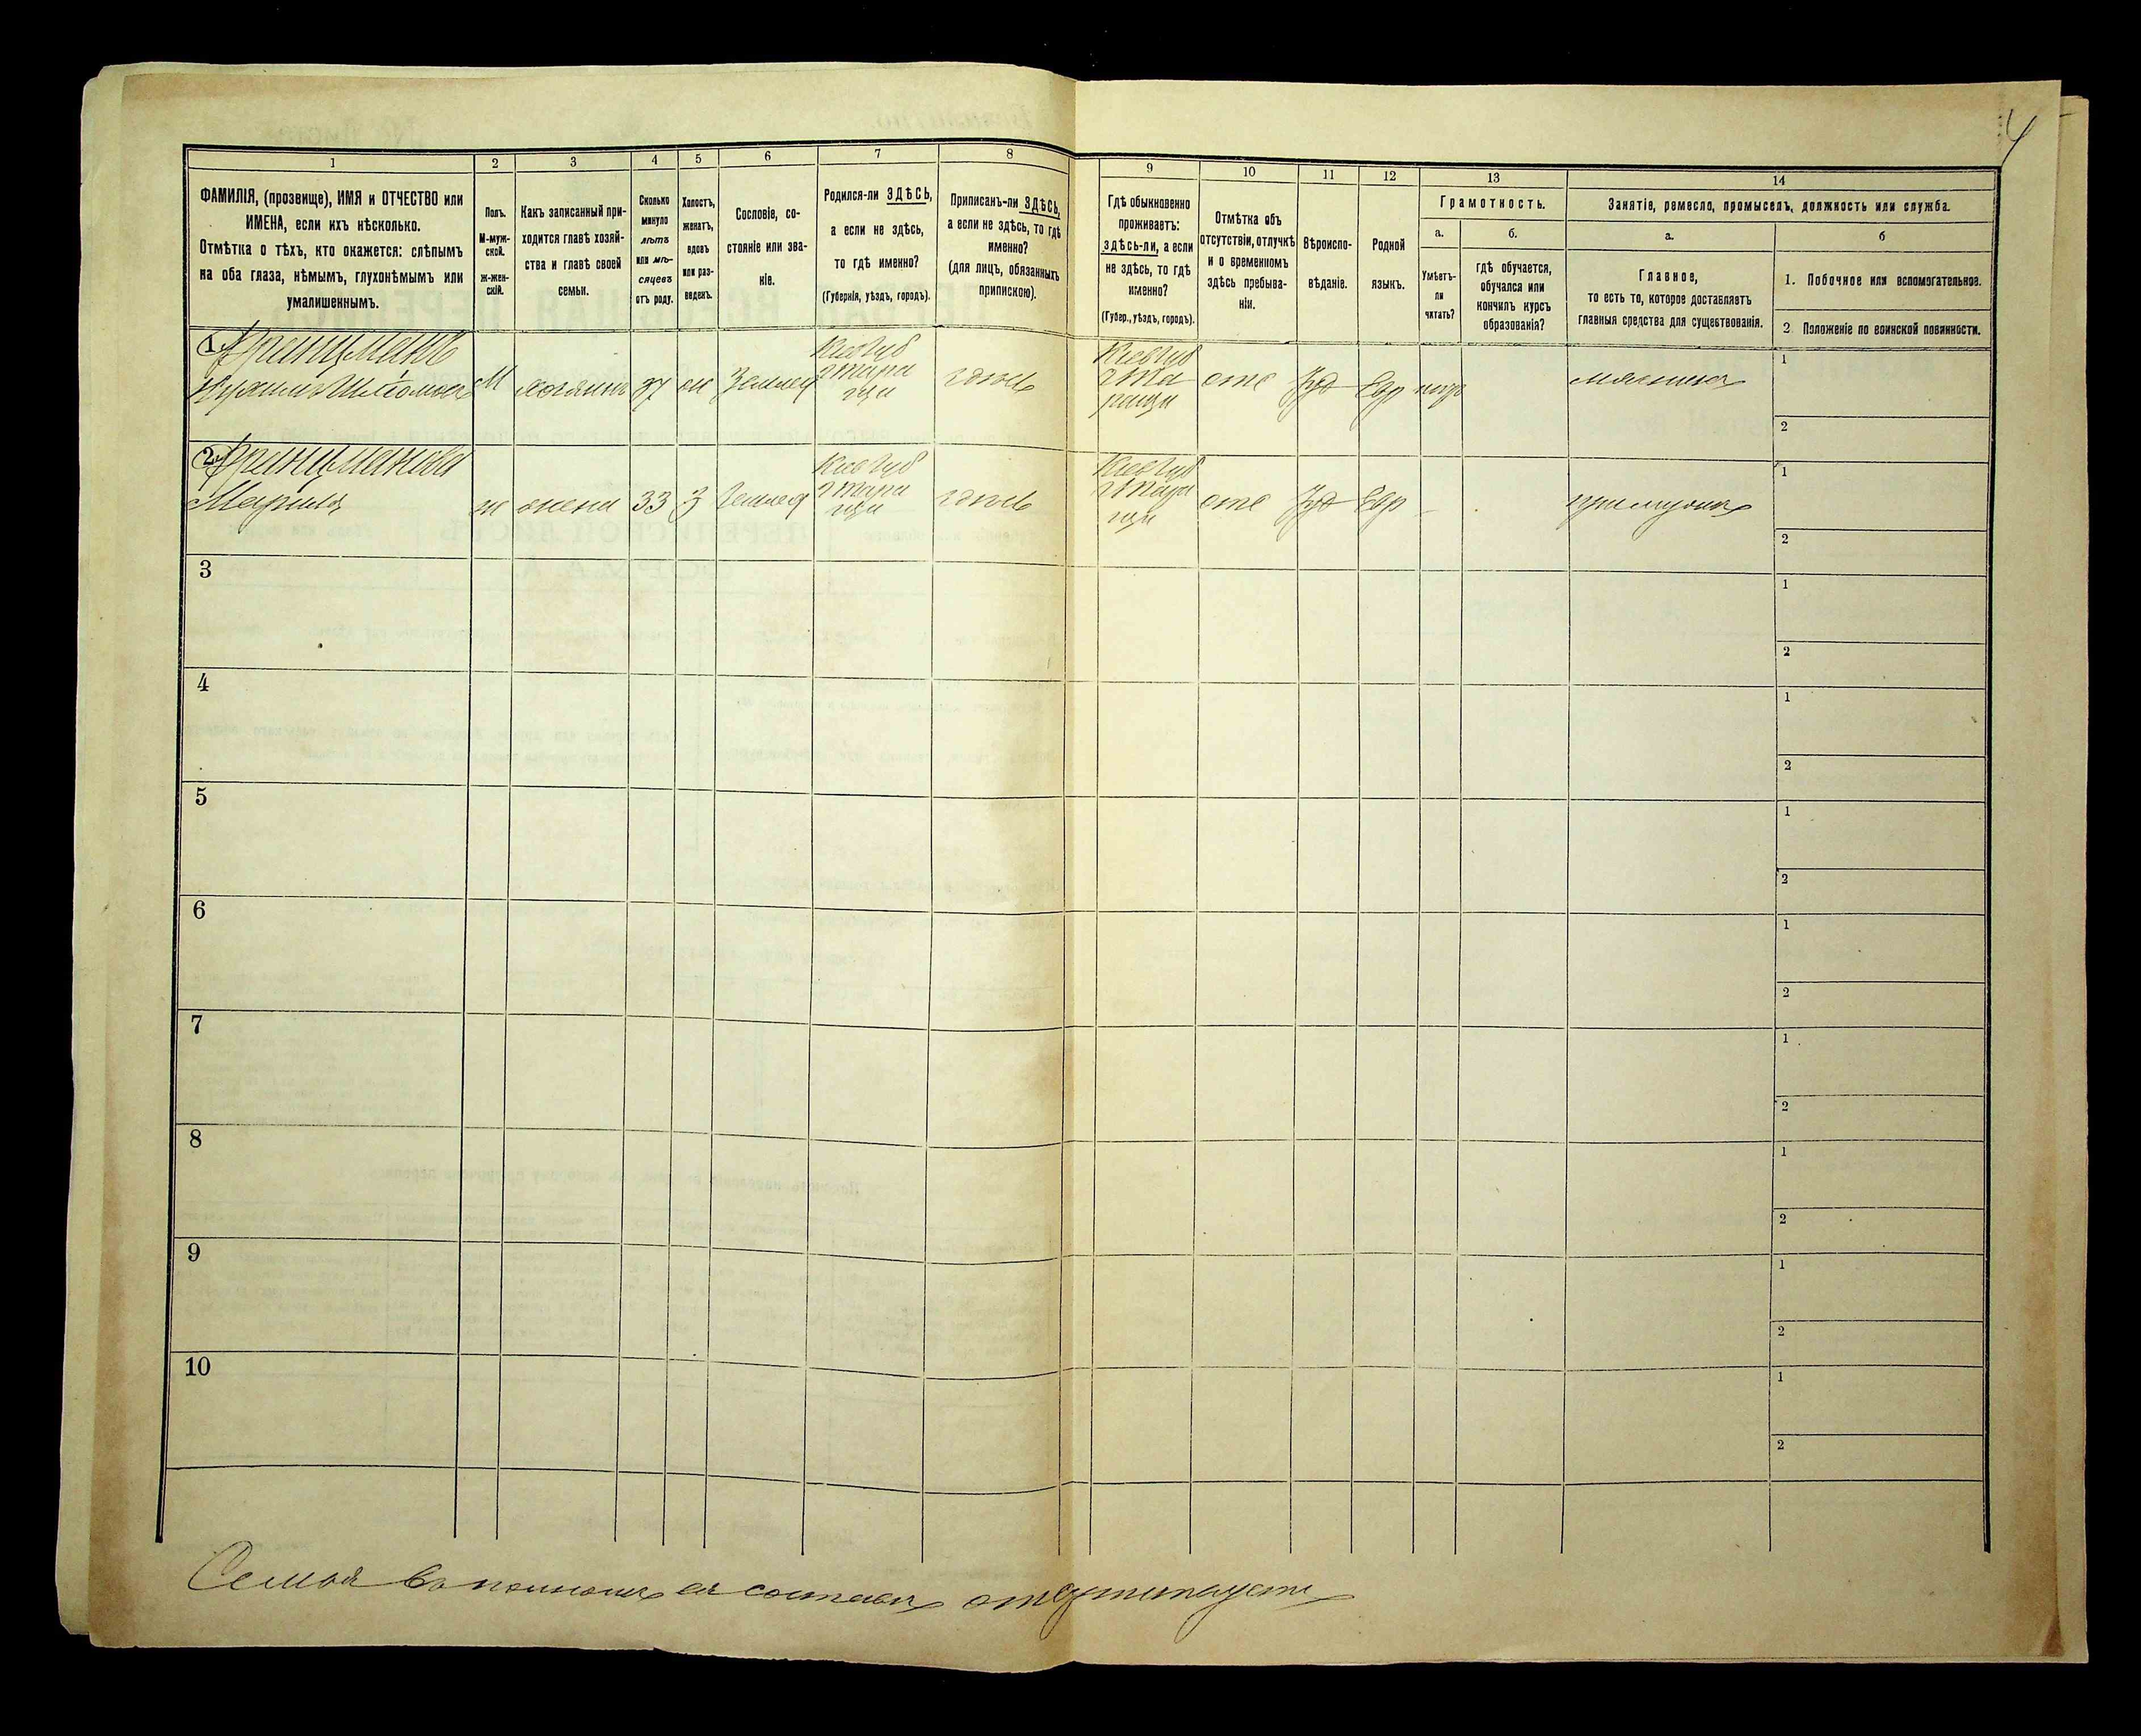 4
1 2 3 4 5 6 7 8 9 10 11 12 13 14
ФАМИЛІЯ, (прозвище), ИМЯ и ОТЧЕСТВО или
ИМЕНА, если ихъ нѣсколько.
Отмѣтка о тѣхъ, кто окажется: слѣпымъ
на оба глаза, нѣмымъ, глухонѣмымъ или
умалишеннымъ.
Полъ.
М-муж-
ской.
ж-жен-
скій.
Какъ записанный при-
ходится главѣ хозяй-
ства и главѣ своей
семьи.
Сколько
минуло
лѣтъ
или мѣ-
сяцевъ
отъ роду.
Холостъ,
женатъ,
вдовъ
или раз-
веденъ.
Сословіе, со-
стояніе или зва-
ніе.
Родился-ли ЗДѢСЬ,
а если не здѣсь,
то гдѣ именно?
(Губернія, уѣздъ, городъ).
Приписанъ-ли ЗДѢСЬ,
а если не здѣсь, то гдѣ
именно?
(для лицъ, обязанныхъ
припискою).
Гдѣ обыкновенно
проживаетъ:
здѣсь-ли, а если
не здѣсь, то гдѣ
именно?
(Губер., уѣздъ, городъ).
Отмѣтка объ
отсутствіи, отлучкѣ
и о временномъ
здѣсь пребыва-
ніи.
Вѣроиспо-
вѣданіе.
Родной
языкъ.
Грамотность.
а.
Умѣетъ-
ли
читать?
б.
гдѣ обучается,
обучался или
кончилъ курсъ
образованія?
Занятіе, ремесло, промыселъ, должность или служба.
а.
Главное,
то есть то, которое доставляетъ
главныя средства для существованія.
б
1. Побочное или вспомогательное.
2. Положеніе по воинской повинности.
1
М хозяинъ 37 Землед
здѣсь
отс Іуд Евр
1
2
2
Марьям ж жена 33 З Землед
здѣсь
отс Іуд Евр -
1
2
3
1
2
4
1
2
5
1
2
6
1
2
7
1
2
8
1
2
9
1
2
10
1
2
Семья въ полномъ ея составѣ отсутствуетъ